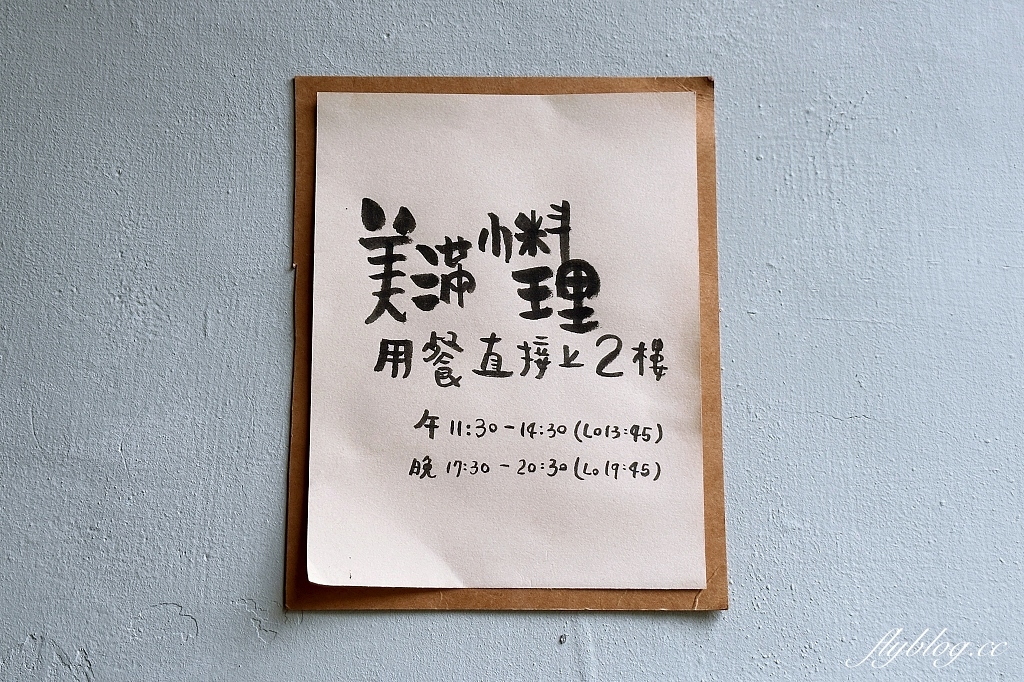 美滿小料理
用餐直接上2樓
午 11:30-14:30 (Lo 13:45)
晚 17:30 - 20:30 (Lo 19:45)
flyblog.cc